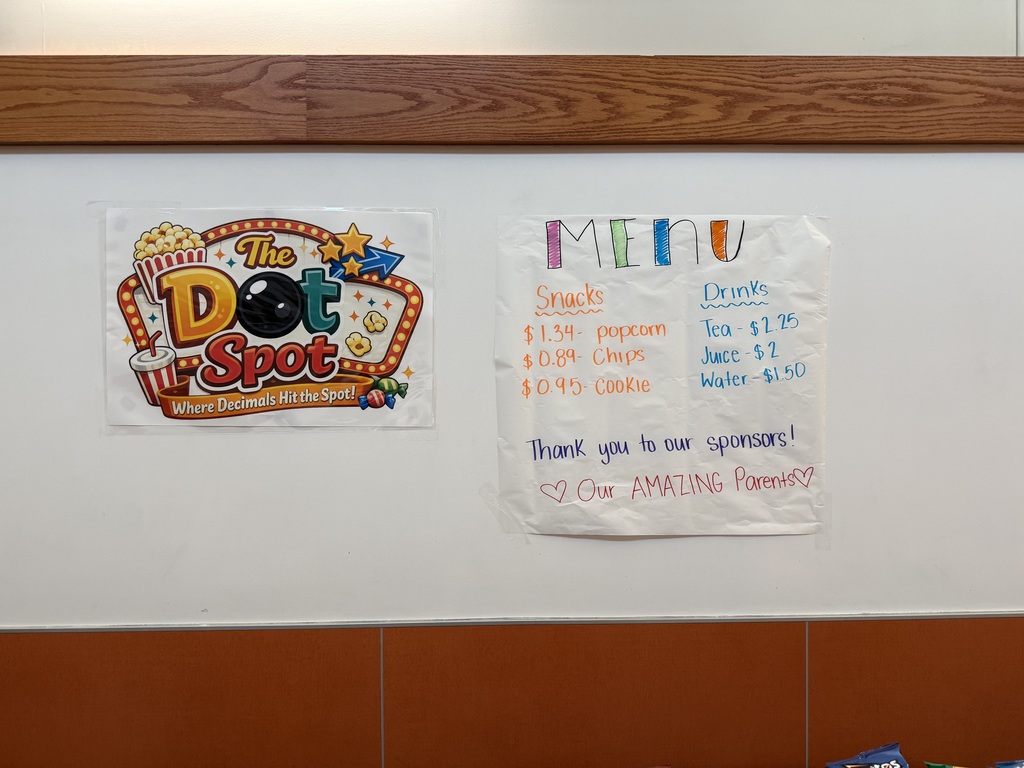 The
Dot
Spot
Where Decimals Hit the Spot!
MENU
Snacks
$1.34- popcorn
$0.89- Chips
$0.95- Cookie
Drinks
Tea - $2.25
Juice - $2
Water - $1.50
Thank you to our sponsors!
♡ Our AMAZING Parents♡